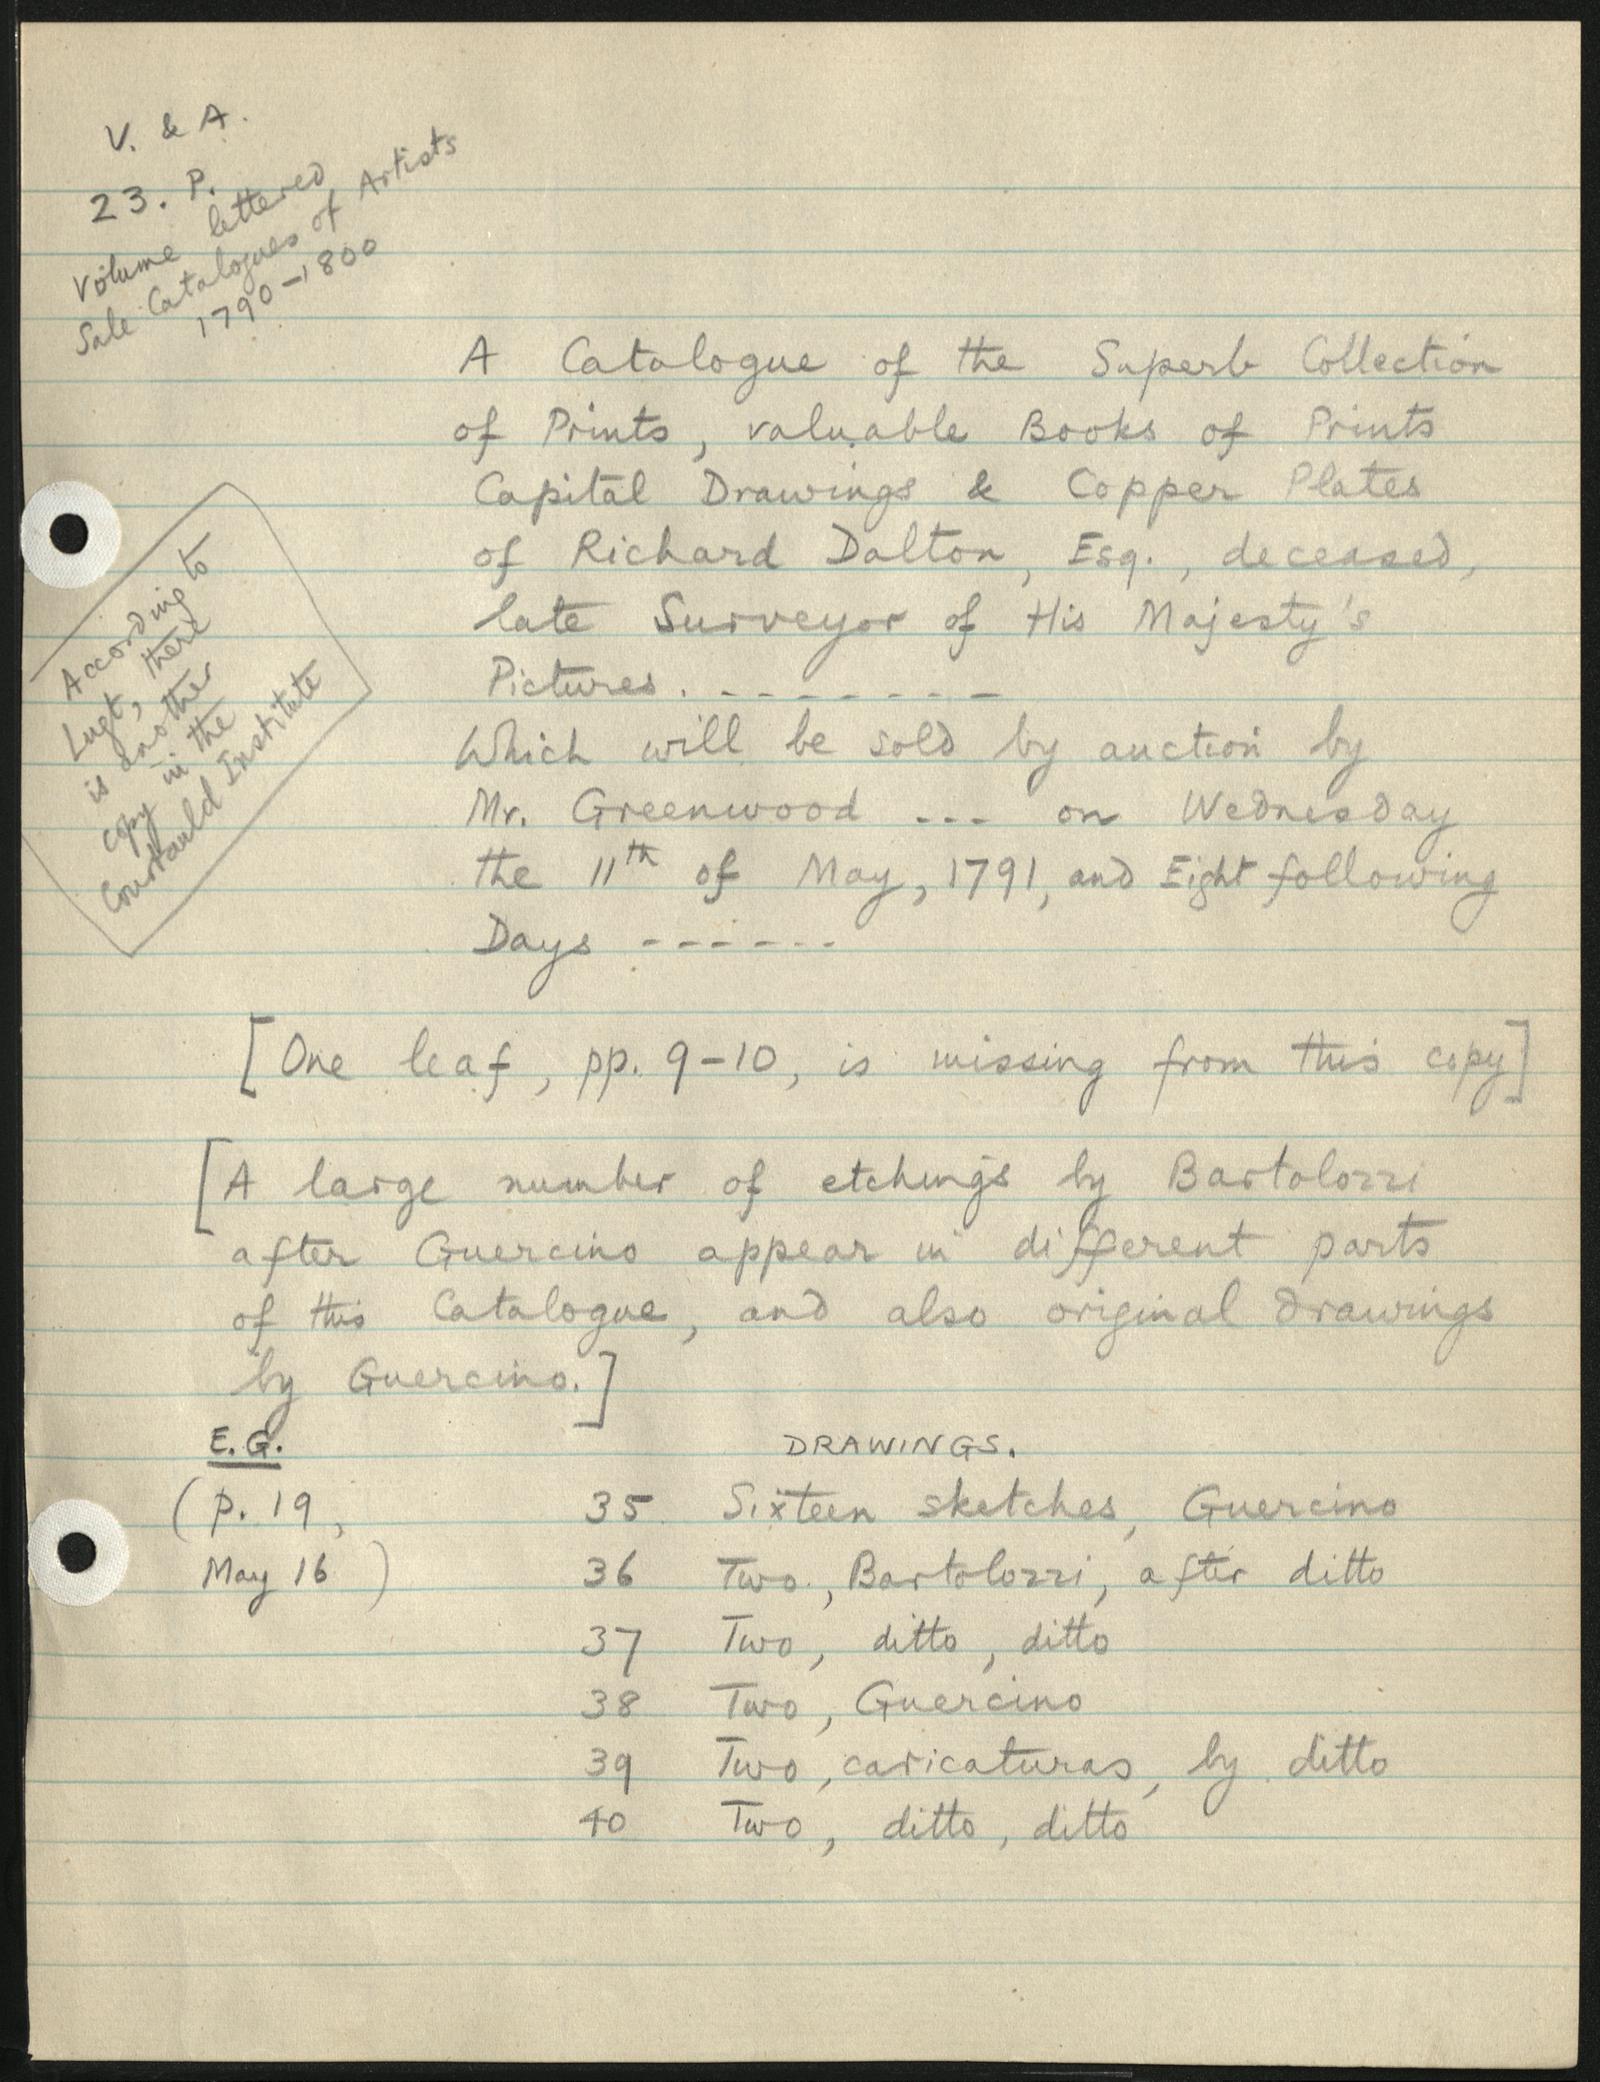 V. & A.
23. P.
Volume lettered
Sale Catalogues of Artists
1790-1800
A Catalogue of the Superb Collection
of Prints, valuable Books of Prints
Capital Drawings & Copper Plates
of Richard Dalton, Esq., deceased,
late Surveyor of His Majesty's
Pictures. - - - - - - - -
Which will be sold by auction by
Mr. Greenwood --- on Wednesday
the 11th of May, 1791, and Eight following
Days ------
According to
Lugt, there
is another
copy in the
Courtauld Institute
[One leaf, pp. 9-10, is missing from this copy]
[A large number of etchings by Bartolozzi
after Guercino appear in different parts
of this Catalogue, and also original drawings
by Guercino.]
E.G.
DRAWINGS.
(p. 19,
May 16)
35 Sixteen sketches, Guercino
36 Two, Bartolozzi, after ditto
37 Two, ditto, ditto
38 Two, Guercino
39 Two, caricaturas, by ditto
40 Two, ditto, ditto